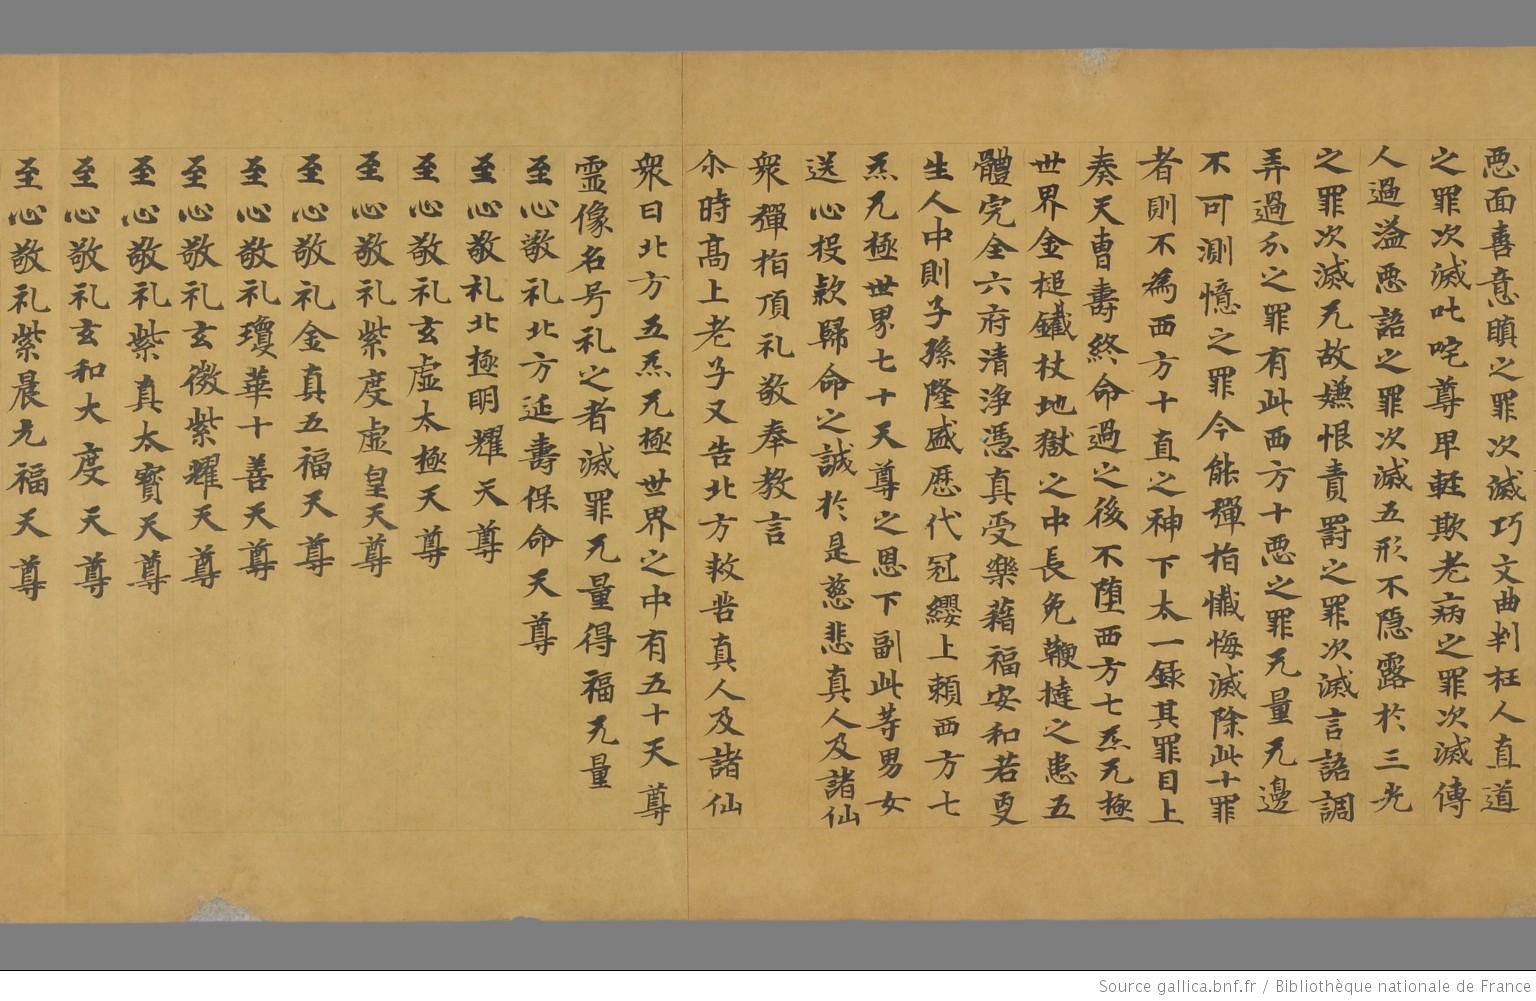 惡面善意瞋之罪次滅巧文曲判枉人直道
之罪次滅吐咤尊卑輕欺老病之罪次滅傳
人過溢惡語之罪次滅五形不隐露於三光
之罪次滅无故嫌恨責罸之罪次滅言語調
弄過尒之罪有此西方十惡之罪无量无邊
不可測憶之罪今能彈指懴悔滅除此十罪
者則不為西方十直之神下太一録其罪目上
奏天曹壽終命過之後不堕西方七炁无極
世界金槌鐵杖地獄之中長免鞭撻之患五
體完全六府清浄憑真受樂藉福安和若更
生人中則子孫隆盛歷代冠纓上頼西方七
炁无極世界七十天尊之恩下副此等男女
送心投欵歸命之誠於是慈悲真人及諸仙
衆彈指頂礼敬奉教言
尒時高上老子又告北方救苦真人及諸仙
衆曰北方五炁无極世界之中有五十天尊
霊像名号礼之者滅罪无量得福无量
至心敬礼北方延壽保命天尊
至心敬礼北極明耀天尊
至心敬礼玄虛太極天尊
至心敬礼紫度虛皇天尊
至心敬礼金真五福天尊
至心敬礼瓊華十善天尊
至心敬礼玄微紫耀天尊
至心敬礼紫真太寳天尊
至心敬礼玄和大度天尊
至心敬礼紫晨九福天尊
Source gallica.bnf.fr / Bibliothèque nationale de France